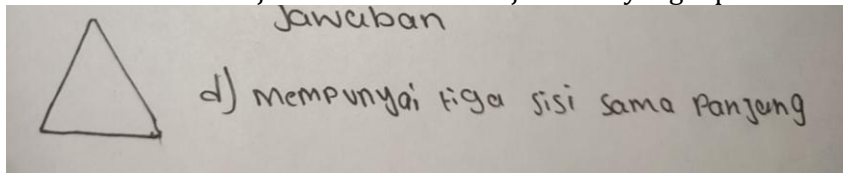 Jawaban
d) mempunyai tiga sisi sama panjang